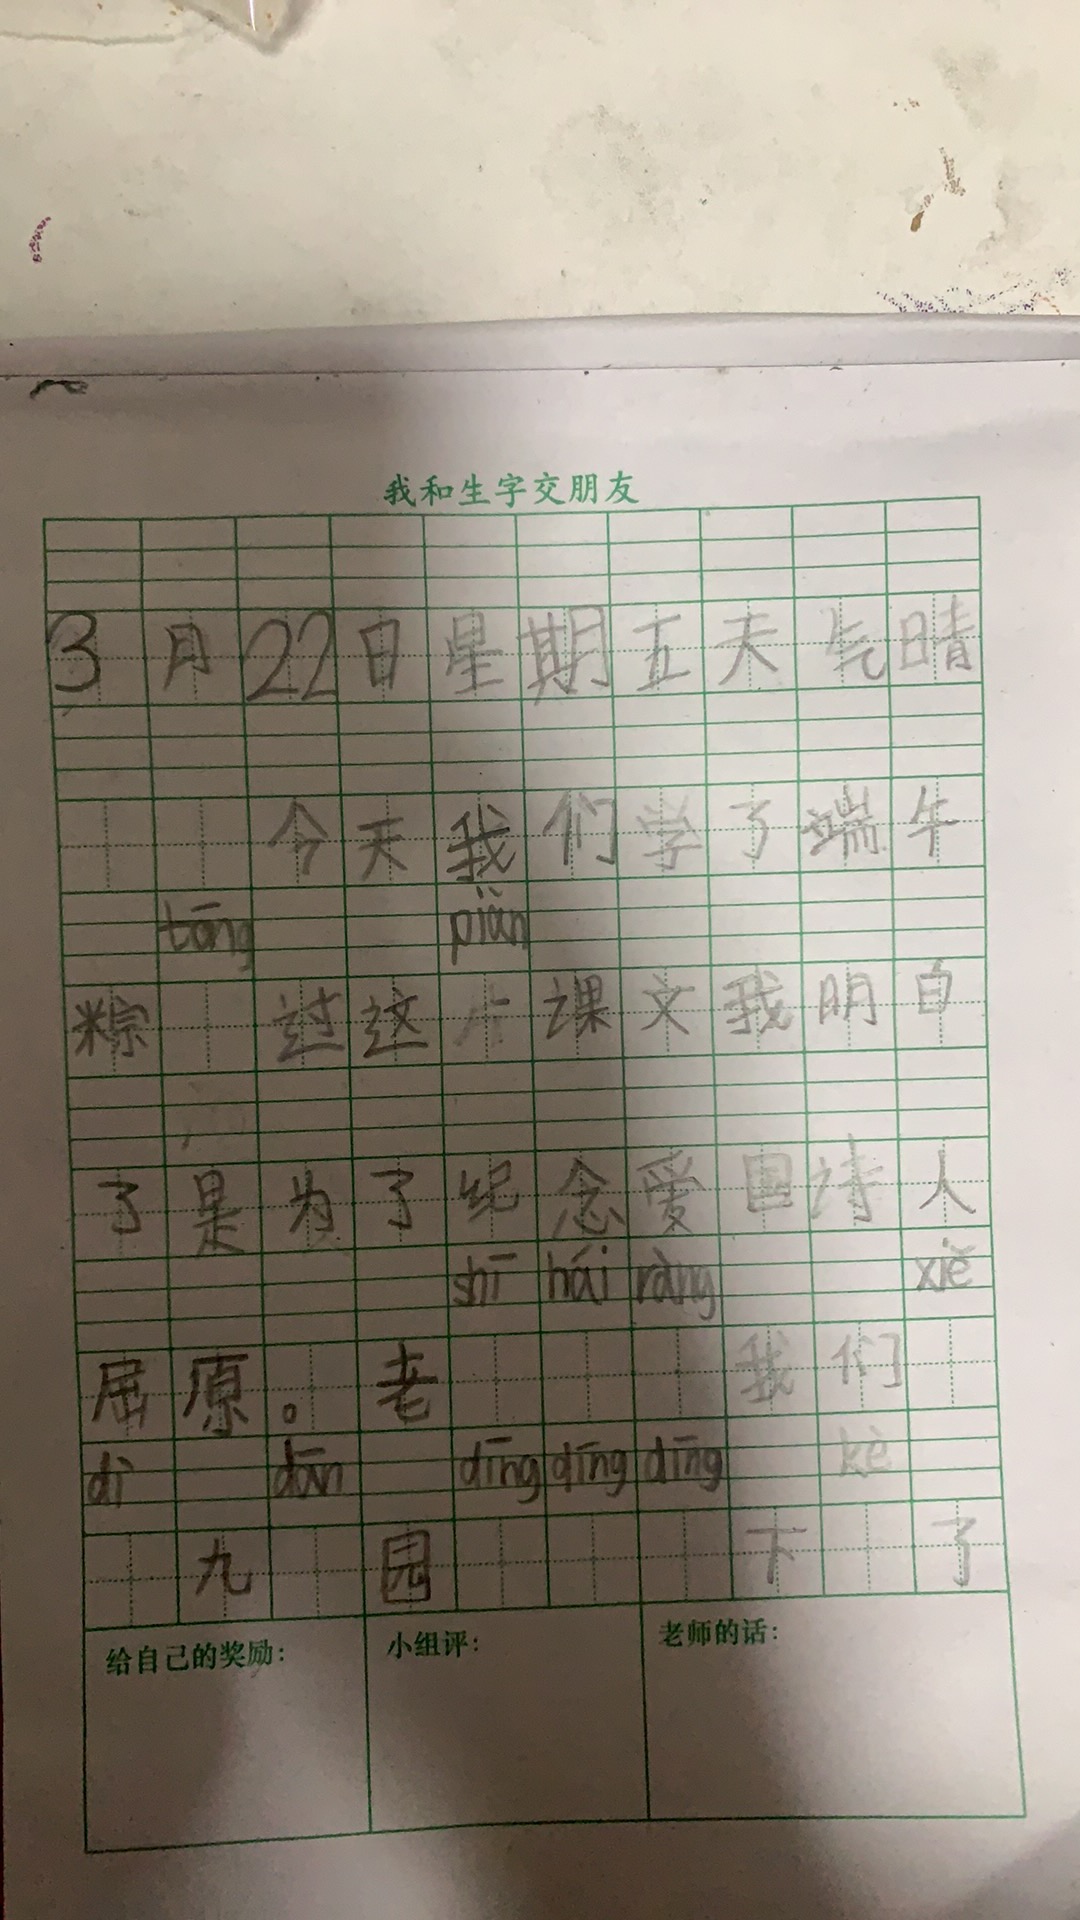 我和生字交朋友
3月22日星期五天气晴
今天我们学了端午
tōng piàn
粽 过这片课文我明白
了是为了纪念爱国诗人
shī hái ràng xiě
屈原。老 我们
dì dān dīng dīng dīng kè
九 园 下 了
给自己的奖励: 小组评: 老师的话: